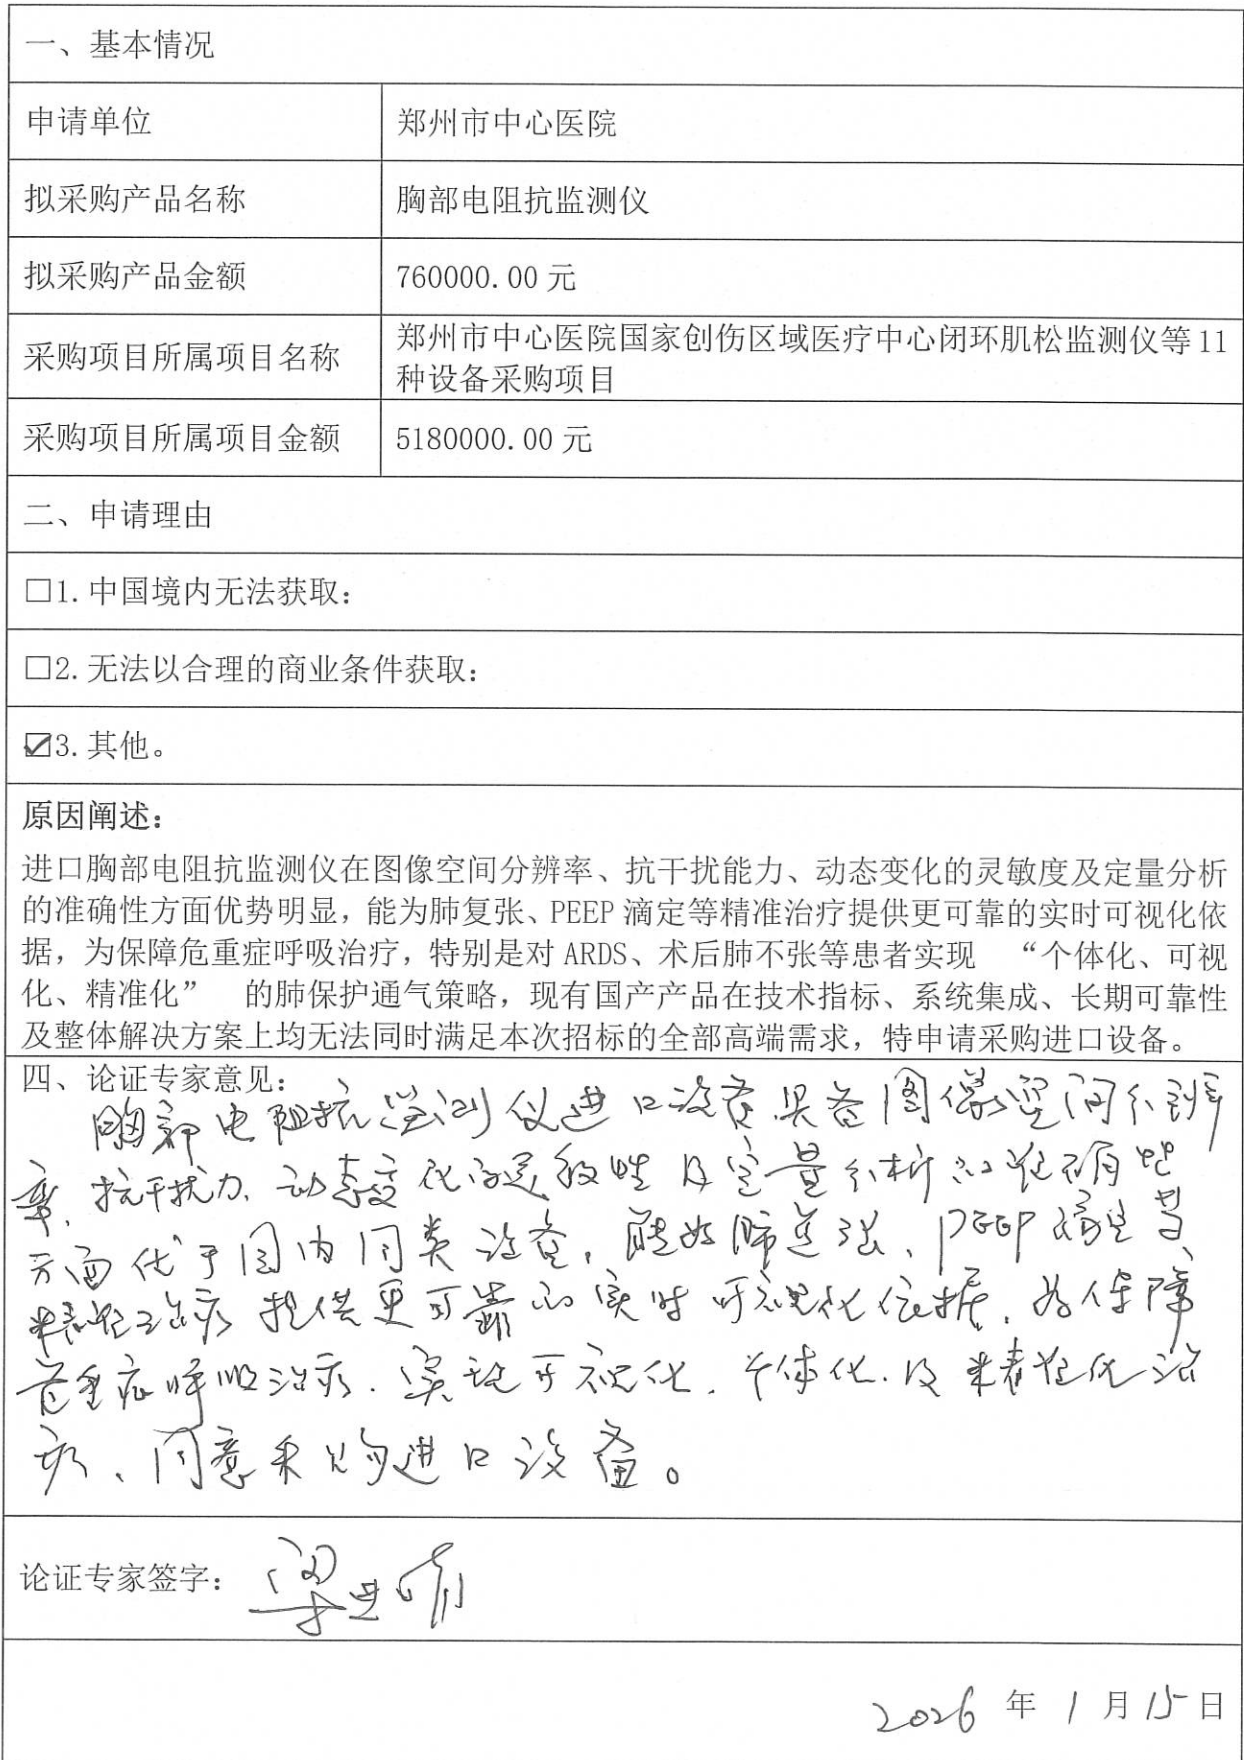 一、基本情况
申请单位
郑州市中心医院
拟采购产品名称
胸部电阻抗监测仪
拟采购产品金额
760000.00元
采购项目所属项目名称
郑州市中心医院国家创伤区域医疗中心闭环肌松监测仪等11
种设备采购项目
采购项目所属项目金额
5180000.00元
二、申请理由
□1.中国境内无法获取：
□2.无法以合理的商业条件获取：
☑3.其他。
原因阐述：
进口胸部电阻抗监测仪在图像空间分辨率、抗干扰能力、动态变化的灵敏度及定量分析
的准确性方面优势明显，能为肺复张、PEEP滴定等精准治疗提供更可靠的实时可视化依
据，为保障危重症呼吸治疗，特别是对ARDS、术后肺不张等患者实现 “个体化、可视
化、精准化” 的肺保护通气策略，现有国产产品在技术指标、系统集成、长期可靠性
及整体解决方案上均无法同时满足本次招标的全部高端需求，特申请采购进口设备。
四、论证专家意见：
胸部电阻抗监测仪进口设备具备图像空间分辨
率、抗干扰力、动态变化的灵敏性及定量分析的准确性
方面优于国内同类设备，能为肺复张、PEEP滴定等
精准治疗提供更可靠的实时可视化依据，为保障
危重症呼吸治疗、实现可视化、个体化及精准化治
疗、同意采购进口设备。
论证专家签字：
2026年1月15日